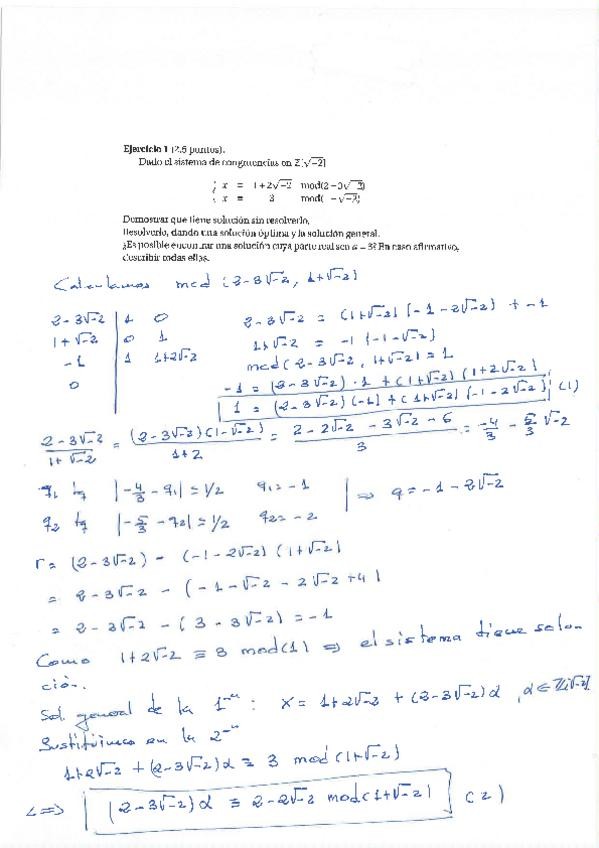 Ejercicio 1 (2.5 puntos).
Dado el sistema de congruencias en Z[√-2]
x = 1+2√-2 mod(2-3√-2)
x = 3 mod( -√-2)
Demostrar que tiene solución sin resolverlo.
Resolverlo, dando una solución óptima y la solución general.
¿Es posible encontrar una solución cuya parte real sea a = 3? En caso afirmativo,
describir todas ellas.
Calculamos mcd (2-3√-2, 1+√-2)
2-3√-2 | 1 0 2-3√-2 = (1+√-2)(-1-2√-2) + -1
1+√-2 | 0 1 1+√-2 = -1(-1-√-2)
-1 | 1 1+2√-2 mcd(2-3√-2, 1+√-2) = 1
0 -1 = (2-3√-2)·1 + (1+√-2)(1+2√-2)
1 = (2-3√-2)(-1) + (1+√-2)(-1-2√-2) (1)
(2-3√-2)/(1+√-2) = (2-3√-2)(1-√-2)/(1+2) = (2-2√-2-3√-2-6)/3 = -4/3 - 5/3 √-2
q₁ tq |-4/3 - q₁| ≤ 1/2 q₁ = -1 | ⇒ q = -1-2√-2
q₂ tq |-5/3 - q₂| ≤ 1/2 q₂ = -2
r = (2-3√-2) - (-1-2√-2)(1+√-2)
= 2-3√-2 - (-1-√-2-2√-2+4)
= 2-3√-2 - (3-3√-2) = -1
Como 1+2√-2 ≡ 3 mod(1) ⇒ el sistema tiene solu-
ción.
Sol. general de la 1ª: x = 1+2√-2 + (2-3√-2)α, α∈Z[√-2]
Sustituimos en la 2ª
1+2√-2 + (2-3√-2)α ≡ 3 mod(1+√-2)
<=> (2-3√-2)α ≡ 2-2√-2 mod(1+√-2) (2)